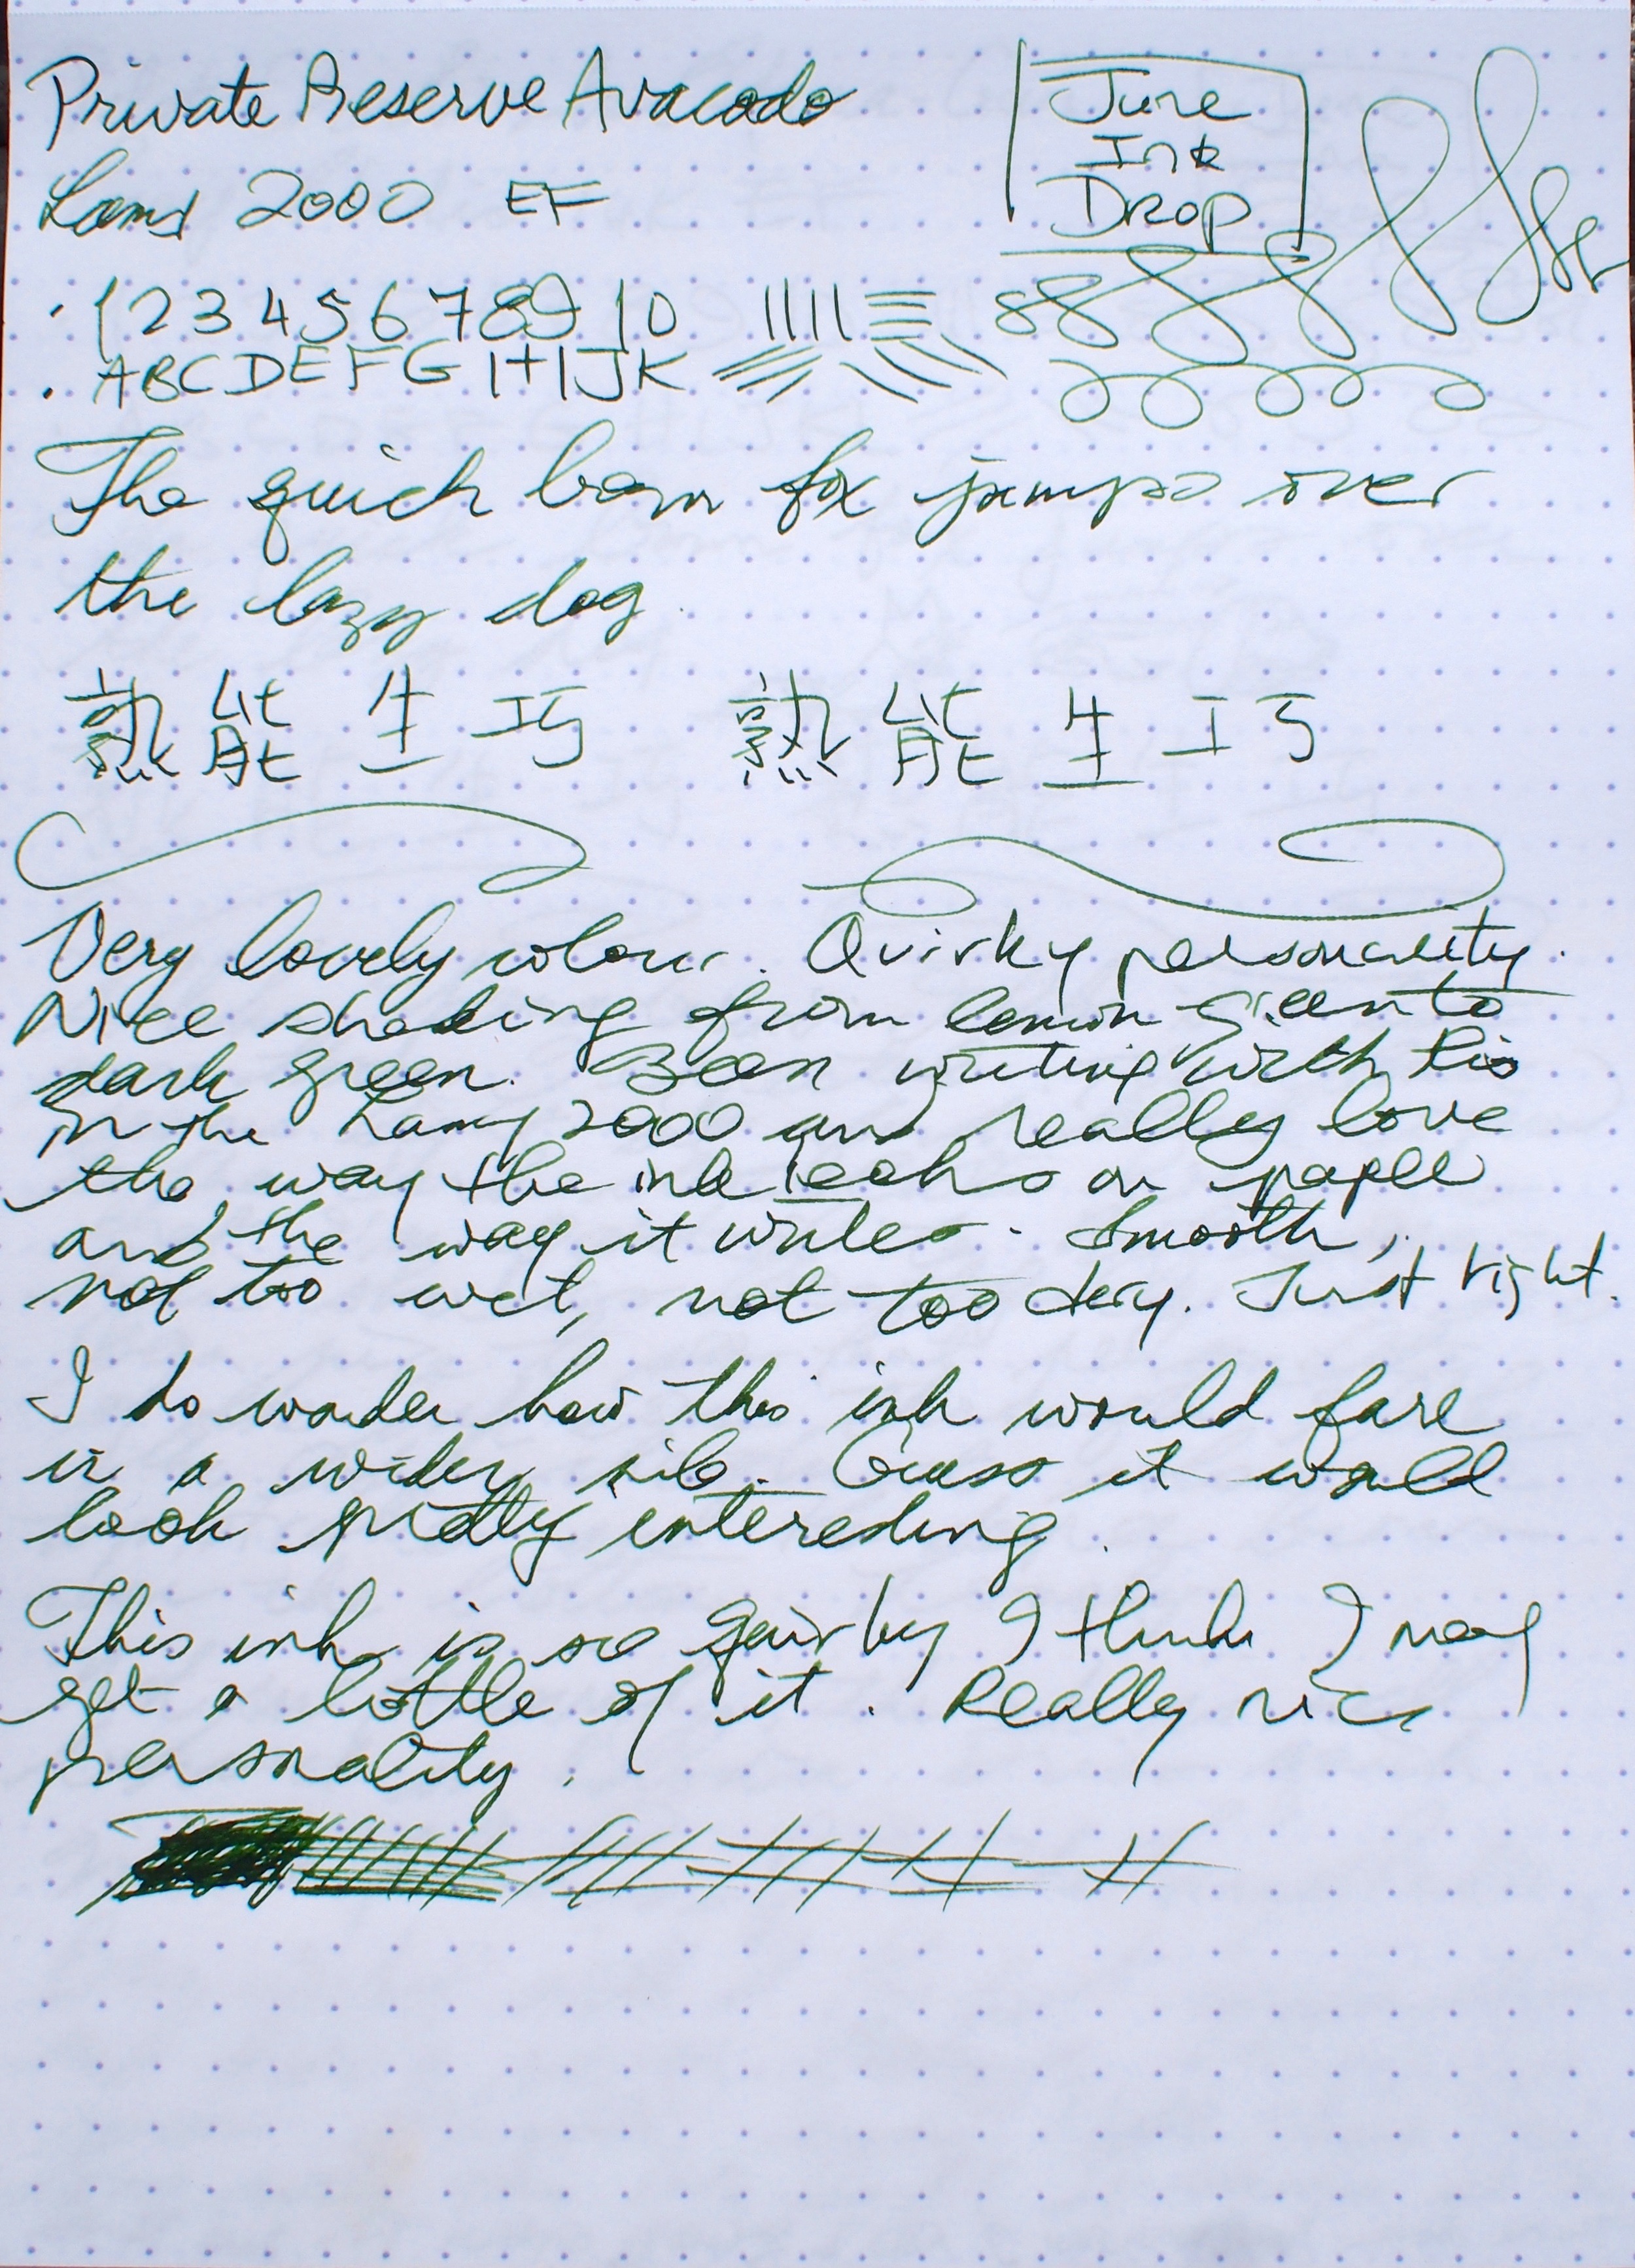 Private Reserve Avacado
June
Ink
Drop
Lamy 2000 EF
1 2 3 4 5 6 7 8 9 10
A B C D E F G H I J K
The quick brown fox jumps over
the lazy dog.
熟能生巧 熟能生巧
Very lovely colour. Quirky personality.
Nice shading from lemon green to
dark green. Been writing with this
in the Lamy 2000 and really love
the way the ink looks on paper
and the way it writes. Smooth,
not too wet, not too dry. Just right.
I do wonder how this ink would fare
in a wider nib. Guess it would
look pretty interesting.
This ink is so quirky I think I may
get a bottle of it. Really nice
personality.